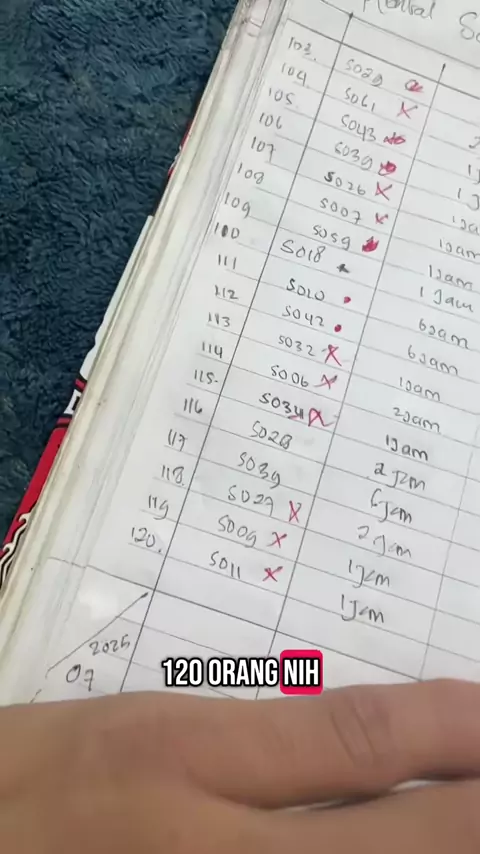 Rental
103. S029
104 S061 2
105. S043 1 J
106 S039 1 J
107 S026 1Ja
108 S007 1Jam
109 S059 1Jam
100 S018 1 Jam
111 S020 6Jam
112 S042 6Jam
113 S032 1Jam
114 S006 2Jam
115. S034 1Jam
116 S028 2 Jam
117 S039 6 Jam
118. S027 2 Jam
119 S009 1 Jam
120. S011 1 Jam
2025
07
120 ORANG NIH